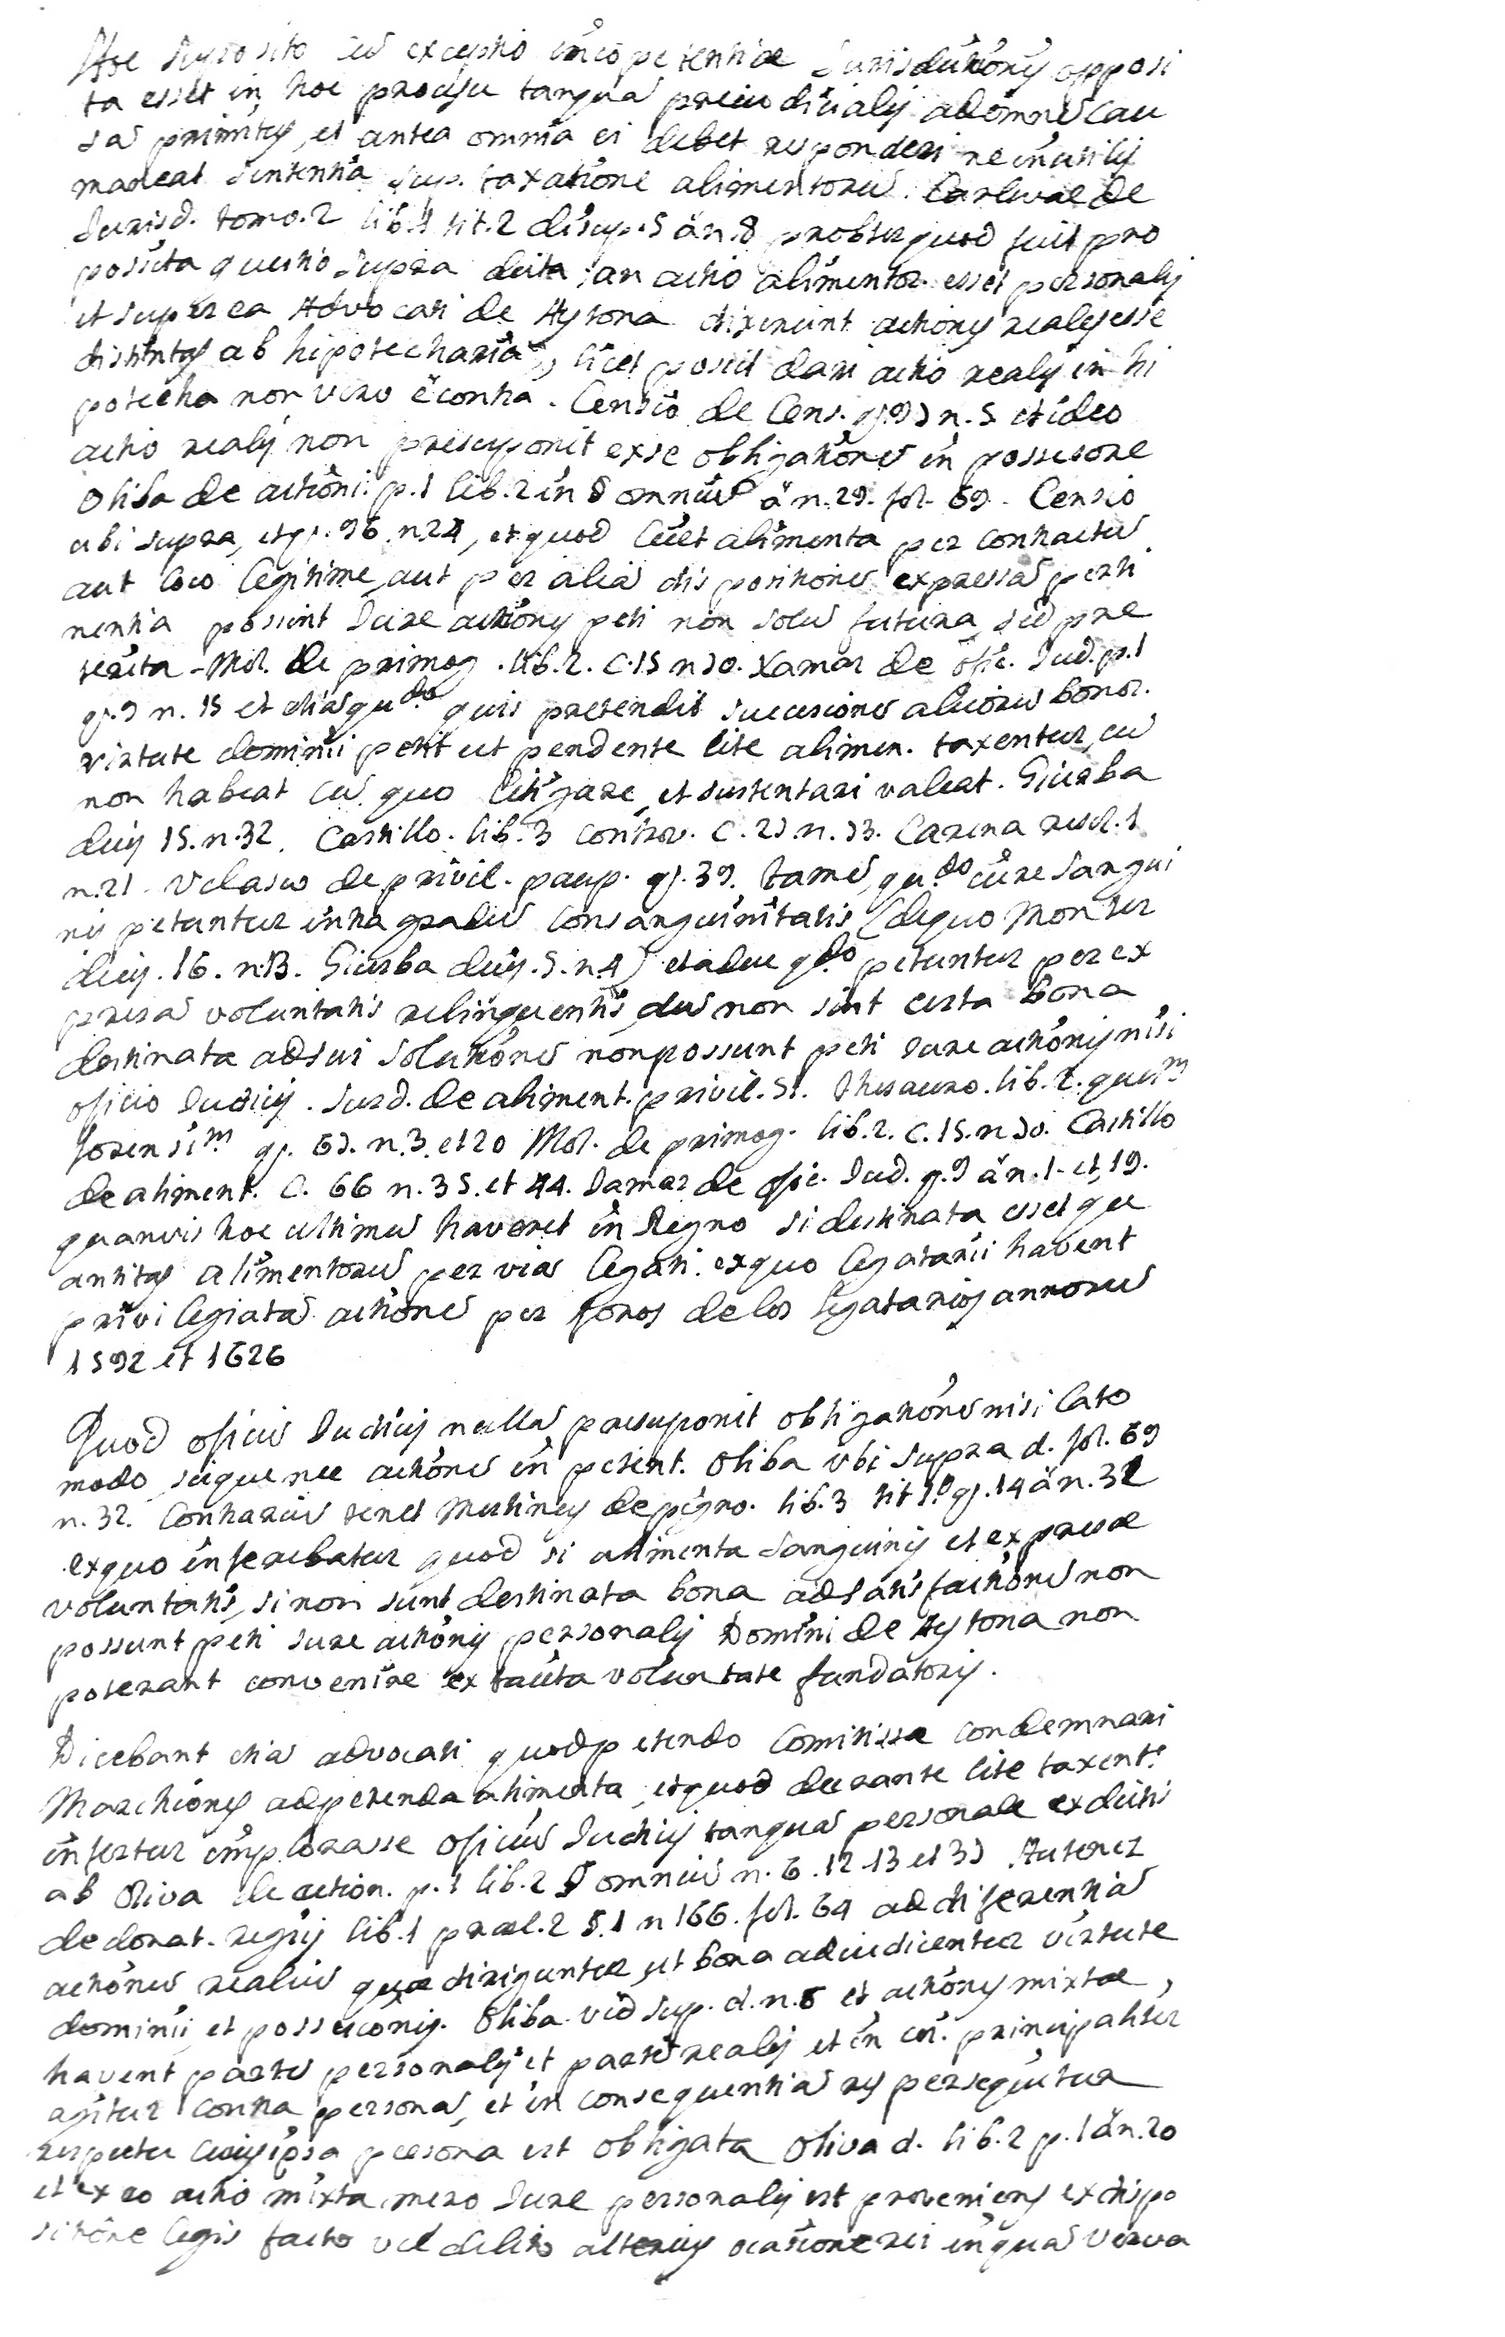 Hoc suposito cu exceptio incōpetentiæ Jurisductionis opposi
ta esset in hoc procesu tanquā preiudicialis ad omnē cau
sā primitus, et antea omnia ei debet responderi ne inutilis
maneat sententia sup. taxatione alimentorū. Carlevae de
Jurisd. tomo. 2 lib. 1 tit. 2 disup. 5 ā n. 8 probter quod fuit pro
posita questio supra dicta, an actio alimentor. esset personalis
et super ea Advocati de Aytona dixerunt actionis realis esse
distintas ab hipotecharia, licet possit dari actio realis in hi
potecha non vero ē contra. Censio de Cens. q. 93 n. 5 et ideo
actio realis non presuponit ex se obligationē in possesore
Oliba de actioni. p. 1 lib. 2 in § omniū ā n. 29. fol. 69. Censio
ubi supra, et q. 96 n. 24, et quod licet alimenta per contractū
aut loco legitime, aut per aliā dispositionē expressā perti
nentia possint Jure actionis peti non solū futura, sed pre
terita - Mol. de primog. lib. 2. c. 15 n 30. Xamar de ofic. Jud. p. 1
q. 9 n. 15 et etiā qu.do quis pretendit succesionē aliorū bonor.
virtute dominii petit ut pendente lite alimen. taxentur, cū
non habeat cū quo litigare, et sustentari valeat. Giurba
decis 15. n. 32. Castillo. lib. 3 controv. c. 23 n. 33. Carena resol. 1
n. 21. Velasco de privil. paup. q. 39. tamē, qu.do iure sangui
nis petuntur intra gradū consanguinitatis (de quo Monter
decis. 16. n. 13. Giurba decis. 5. n. 4) et aduc q.do petuntur per ex
presā voluntatis relinquentis, dū non sint certa bona
destinata ad sui solutionē non possunt peti Jure actionis nisi
oficio Judicis. Surd. de aliment. privil. 51. Thesauro. lib. 2. quest.
forensi.m q. 63. n. 3. et 20 Mol. de primog. lib. 2. c. 15. n 30. Castillo
de aliment. c. 66 n. 35. et 44. Jamar de ofic. Jud. q. 9 ā n. 1. et, 19.
quamvis hoc ultimū haveret in Regno si destinata esset qu
antitas alimentorū per viā legati. ex quo legatarii havent
privilegiatā actionē per foros de los legatarios annorū
1592 et 1626
Quod oficiū Judicis nullā presuponit obligationē nisi lato
modo, sicque nec actionē in petent. Oliba ubi supra d. fol. 69
n. 32. Contrariū tenet Mertines de pigno. lib. 3 tit 1.o q. 14 ā n. 32
ex quo inferebatur quod si alimenta sanguinis et expresæ
voluntatis, si non sunt destinata bona ad satisfactionē non
possunt peti Jure actionis personalis Domini de Aytona non
poterant convenire ex tacita voluntate fundatoris.
Dicebant etiā advocati quod petendo Comitissa condemnari
Marchionis ad petenda alimenta, et quod durante lite taxent.r
infertur implorasse oficiū Judicis tanquā personale ex dictis
ab Oliva de action. p. 1 lib. 2 § omniū n. 6. 12. 13 et 33 Autenez
de donat. regis lib. 1 præl. 2 §. 1 n 166. fol. 64 ad diferentiā
actionū realiū quæ diriguntur, ut bona adiudicentur virtute
dominii, et possesionis. Oliba. vid sup. d. n. 6 et actionis mixtæ,
havent partē personalis et partē realis et in eis. principaliter
agitur contra personā, et in consequentiā rei persequitur
respectu cuius ipsa persona est obligata Oliva d. lib. 2 p. 1 ā n. 20
et ex eo actio mixta mero Jure personalis est proveniens ex dispo
sitione legis facto vel delito alterius ocasione rei in quā verva